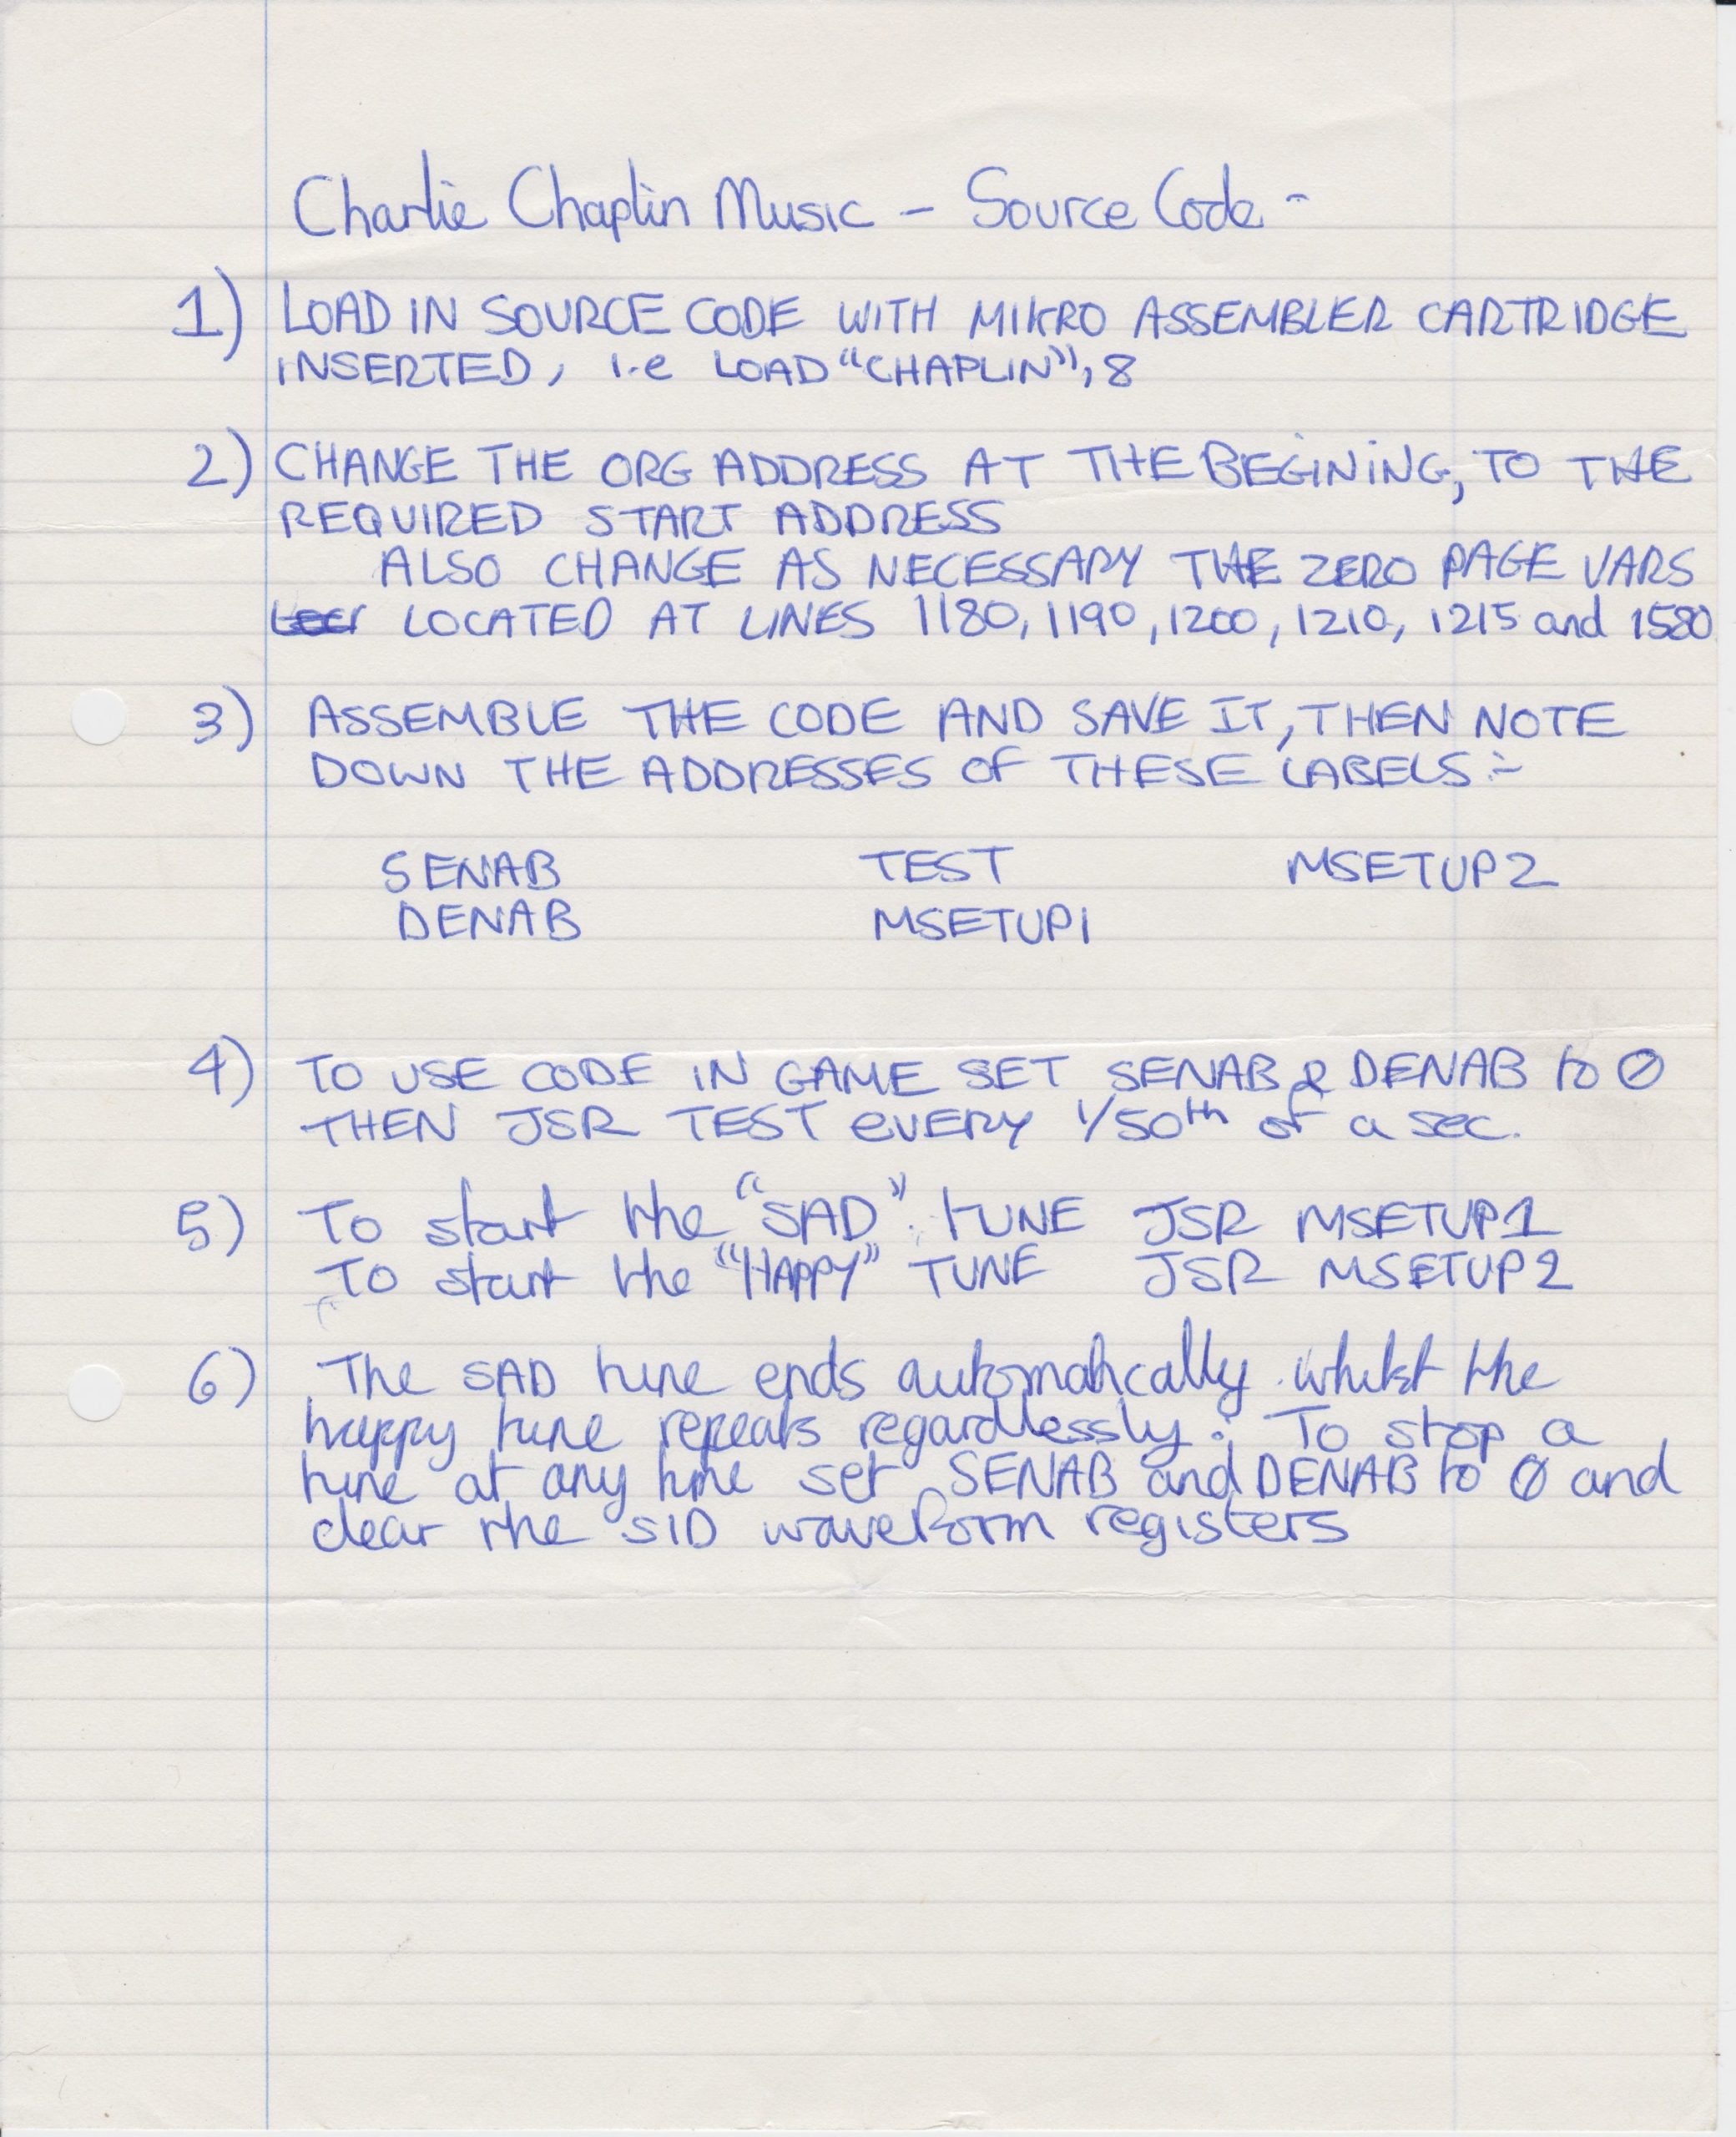 Charlie Chaplin Music - Source Code -
1) LOAD IN SOURCE CODE WITH MIKRO ASSEMBLER CARTRIDGE
INSERTED, i.e LOAD "CHAPLIN", 8
2) CHANGE THE ORG ADDRESS AT THE BEGINING, TO THE
REQUIRED START ADDRESS
ALSO CHANGE AS NECESSARY THE ZERO PAGE VARS
LOCATED AT LINES 1180, 1190, 1200, 1210, 1215 and 1580
3) ASSEMBLE THE CODE AND SAVE IT, THEN NOTE
DOWN THE ADDRESSES OF THESE LABELS :-
SENAB TEST MSETUP2
DENAB MSETUP1
4) TO USE CODE IN GAME SET SENAB & DENAB to 0
THEN JSR TEST EVERY 1/50th of a sec.
5) To start the "SAD" TUNE JSR MSETUP1
To start the "HAPPY" TUNE JSR MSETUP2
6) The SAD tune ends automatically whilst the
happy tune repeats regardlessly. To stop a
tune at any time set SENAB and DENAB to 0 and
clear the SID waveform registers